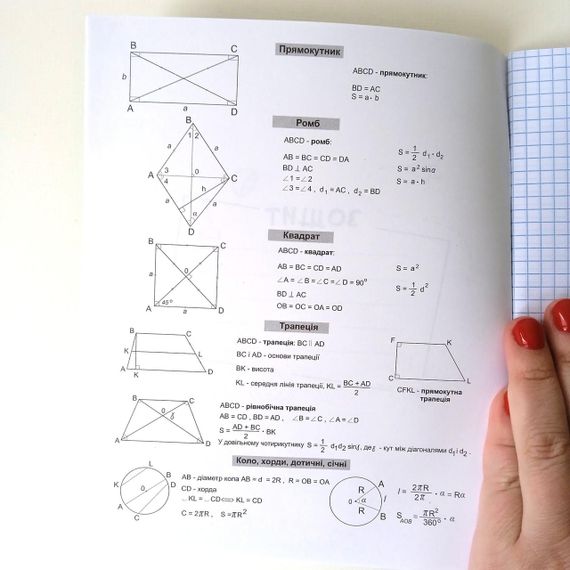 Прямокутник
B
C
b
A
a
D
ABCD - прямокутник:
BD = AC
S = a · b
Ромб
B
1 2
a
a
A
3
4
0
C
h
a
α
a
D
ABCD - ромб:
AB = BC = CD = DA
BD ⊥ AC
∠1 = ∠2
∠3 = ∠4 , d₁ = AC , d₂ = BD
S = 1/2 d₁ · d₂
S = a² sinα
S = a · h
Квадрат
B
C
a
0
45°
A
a
D
ABCD - квадрат:
AB = BC = CD = AD
∠A = ∠B = ∠C = ∠D = 90°
BD ⊥ AC
OB = OC = OA = OD
S = a²
S = 1/2 d²
Трапеція
B
C
K
L
A
K
D
ABCD - трапеція: BC || AD
BC і AD - основи трапеції
BK - висота
KL - середня лінія трапеції, KL = BC + AD / 2
F
K
C
L
CFKL - прямокутна
трапеція
B
C
0
A
D
ABCD - рівнобічна трапеція
AB = CD , BD = AD , ∠B = ∠C , ∠A = ∠D
S = AD + BC / 2 · BK
У довільному чотирикутнику S = 1/2 d₁d₂ sin , де - кут між діагоналями d₁ і d₂ .
Коло, хорди, дотичні, січні
L
K
B
D
0
A
C
AB - діаметр кола AB = d = 2R , R = OB = OA
CD - хорда
KL = CD ⟺ KL = CD
C = 2πR , S = πR²
A
R
0
α
l
R
B
l = 2πR / 2π · α = Rα
S AOB = πR² / 360° · α